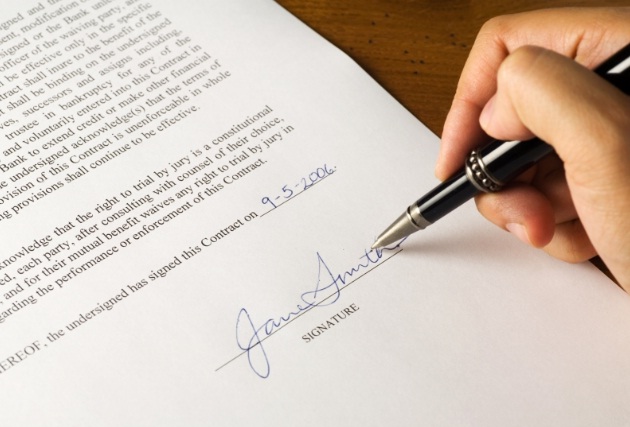 signed and th
ent, modification
signed or the Bank unl
officer of the waiving party, an
l be effective only in the specific
tract shall inure to the benefit of the
shall be binding on the undersigned
ves, successors and assigns including,
trustee in bankruptcy for any of the
and voluntarily entered into this Contract in
Bank to extend credit or make other financial
e undersigned acknowledge(s) that the terms of
ovision of this Contract is unenforceable in whole
ng provisions shall continue to be effective.
knowledge that the right to trial by jury is a constitutional
ed, each party, after consulting with counsel of their choice,
and for their mutual benefit waives any right to trial by jury in
garding the performance or enforcement of this Contract.
EREOF, the undersigned has signed this Contract on 9-5-2006.
Jane Smith
SIGNATURE